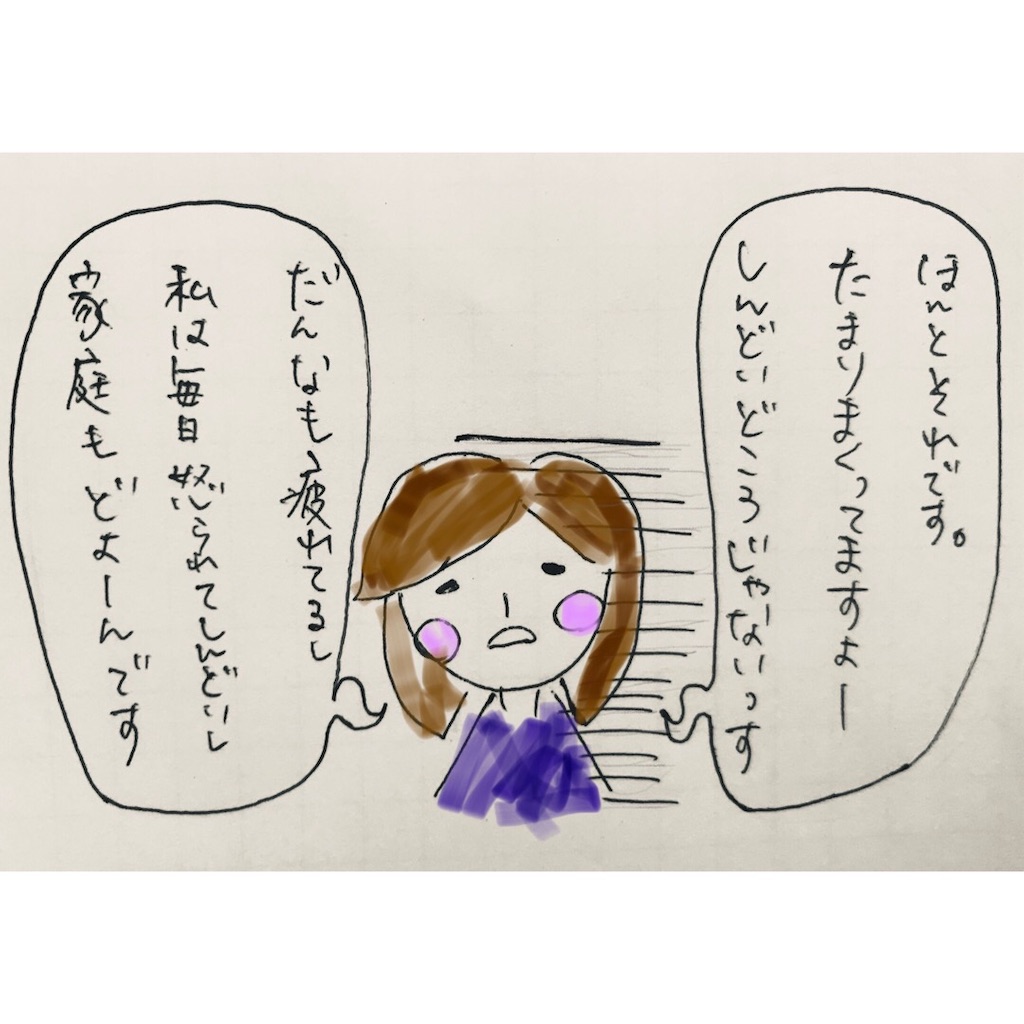 ほんとそれです。
たまりまくってますよー
しんどいどころじゃないっす
だんなも疲れてるし
私は毎日怒られてしんどいし
家庭もどよーんです